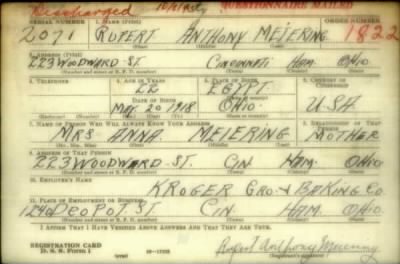 Discharged QUESTIONNAIRE MAILED
SERIAL NUMBER 1. NAME (Print) ORDER NUMBER
2071 RUPERT ANTHONY MEIERING 1822
(First) (Middle) (Last)
2. ADDRESS (Print)
223 WOODWARD ST. CINCINNATI HAM. OHIO
(Number and street or R. F. D. number) (Town) (County) (State)
3. TELEPHONE 4. AGE IN YEARS 5. PLACE OF BIRTH 6. COUNTRY OF CITIZENSHIP
22 EGYPT
DATE OF BIRTH
MAY 20 1918 OHIO. U-SA
(Mo.) (Day) (Yr.)
7. NAME OF PERSON WHO WILL ALWAYS KNOW YOUR ADDRESS 8. RELATIONSHIP OF THAT PERSON
MRS ANNA MEIERING MOTHER
(Mr., Mrs., Miss) (First) (Middle) (Last)
9. ADDRESS OF THAT PERSON
223 WOODWARD ST. CIN HAM. OHIO
(Number and street or R. F. D. number) (Town) (County) (State)
10. EMPLOYER'S NAME
KROGER GRO & BAKING CO
11. PLACE OF EMPLOYMENT OR BUSINESS
1240 DEPOT ST. CIN. HAM. OHIO.
(Number and street or R. F. D. number) (Town) (County) (State)
I AFFIRM THAT I HAVE VERIFIED ABOVE ANSWERS AND THAT THEY ARE TRUE.
REGISTRATION CARD
D. S. S. Form 1 (over) Rupert Anthony Meiering
(Registrant's signature)